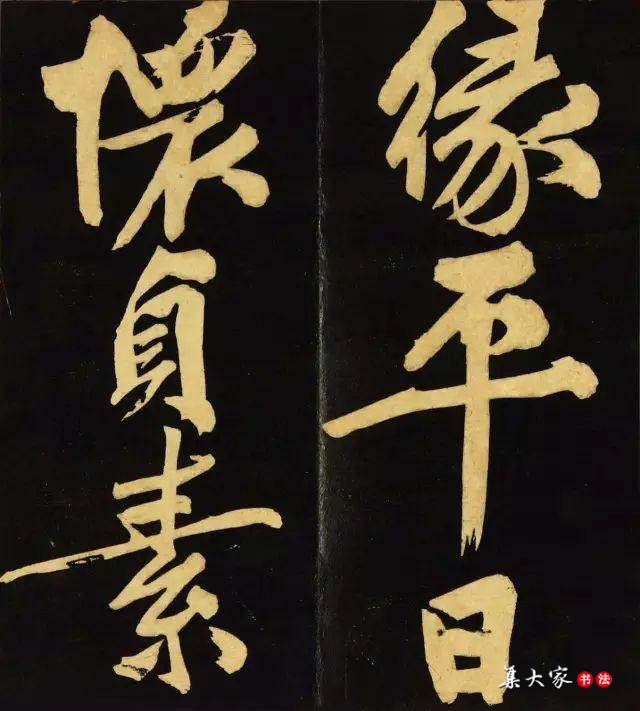 缘平日
懷貞素
集大家书法